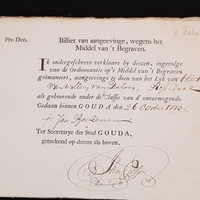 Pro Deo.
Billiet van aangeevinge, wegens het
Middel van 't Begraven.
Ik ondergeschreve verklaare by dezen, ingevolge
van de Ordonnantie op 't Middel van 't Begraven
geëmaneert, aangeevinge te doen van het Lyk van
als gehoorende onder de Classe van d' onvermogende.
Gedaan binnen GOUDA den 26 October
Jan
Ter Secretarye der Stad GOUDA,
geteekend op datum als boven.